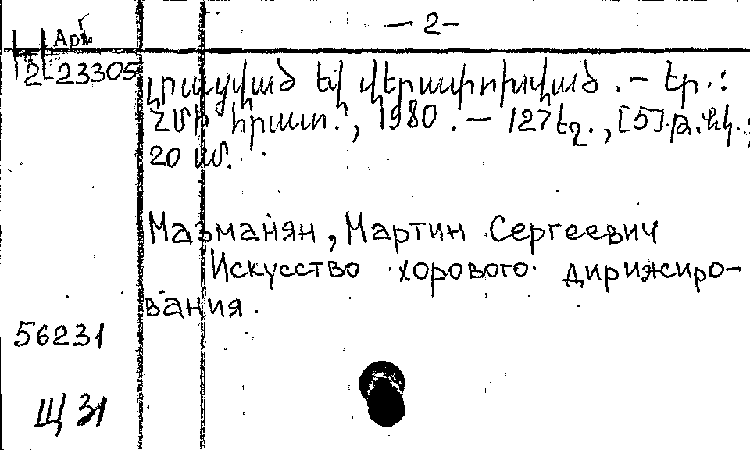 — 2 —
Арг
12-23305
լրացված եվ վերափոխված . — Եր . :
ՀՄԻ հրատ . , 1980 . — 127 էջ . , [5] թ . նկ . ;
20 սմ .
Мазманян , Мартин Сергеевич
Искусство хорового дирижиро-
вания .
56231
Щ 31